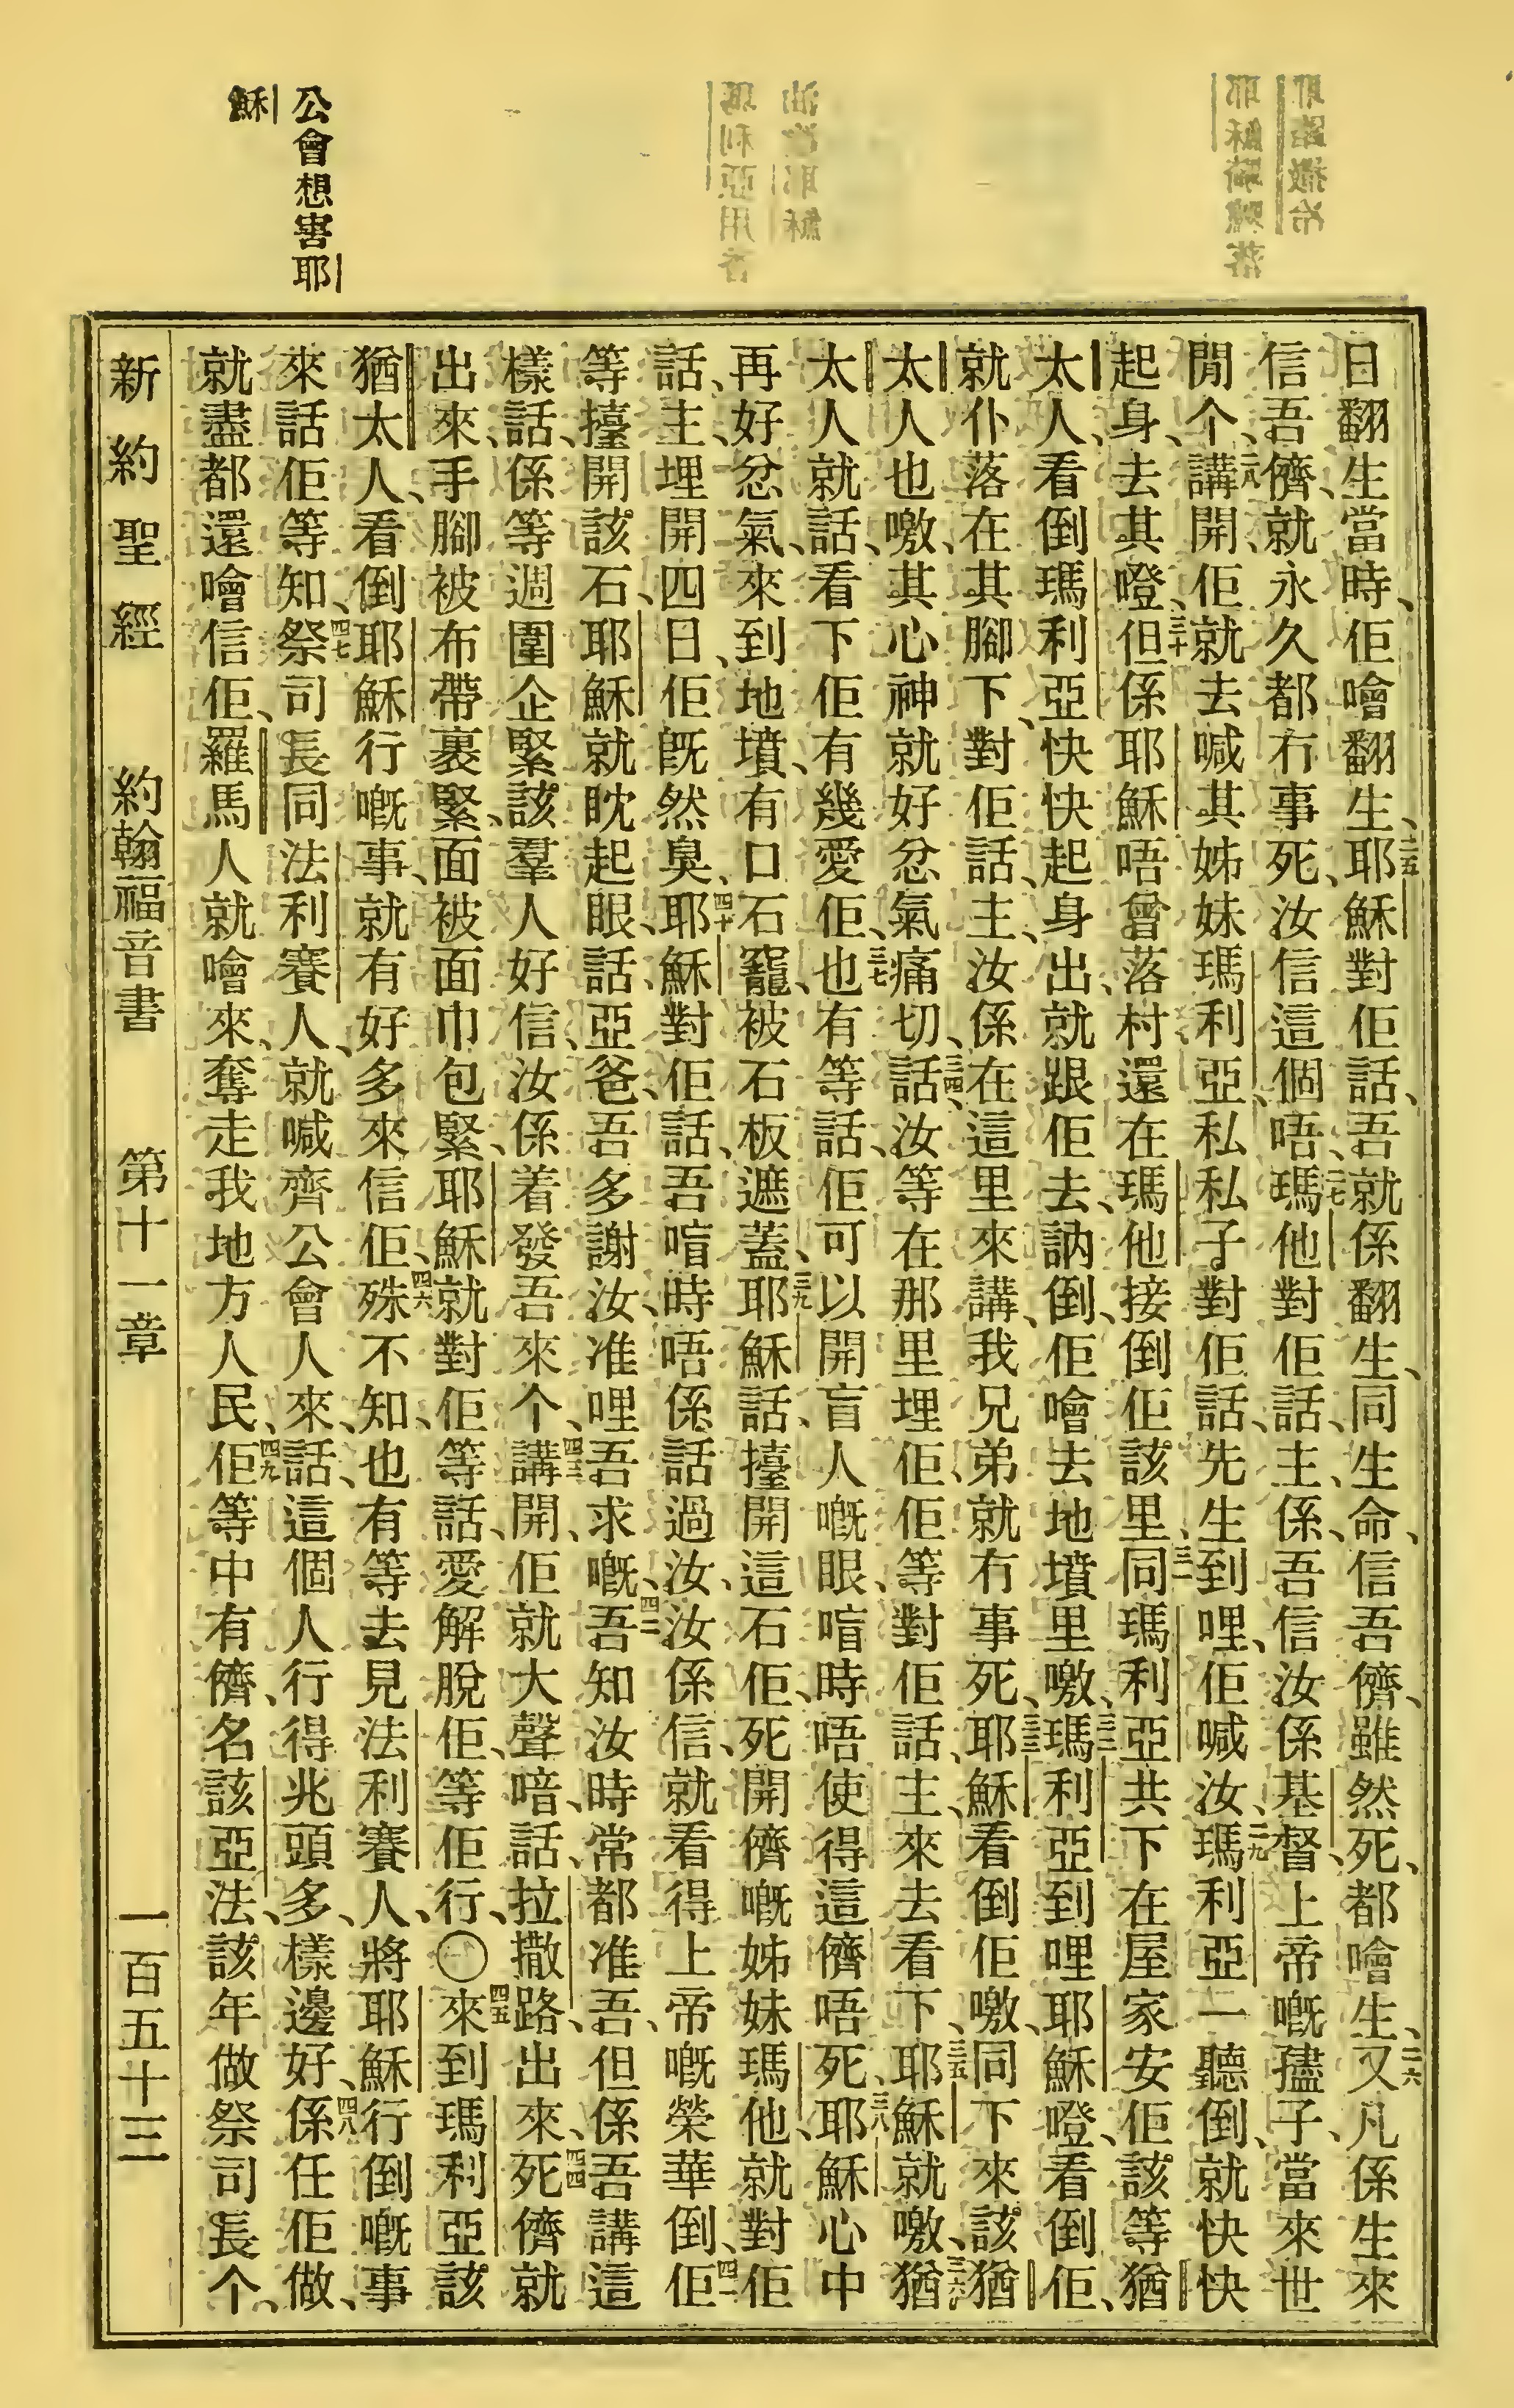 公會想害耶
穌
日翻生當時、佢噲翻生、二五耶穌對佢話、吾就係翻生、同生命、信吾儕、雖然死、都噲生、二六又凡係生來
信吾儕、就永久都冇事死、汝信這個唔、二七瑪他對佢話、主、係、吾信汝係基督、上帝嘅孻子、當來世
閒个、二八講開、佢就去喊其姊妹瑪利亞、私私子對佢話、先生到哩、佢喊汝、二九瑪利亞一聽倒、就快快
起身、去其嶝、三十但係耶穌唔曾落村、還在瑪他接倒佢該里、三一同瑪利亞共下在屋家安佢該等猶
太人、看倒瑪利亞快快起身出、就跟佢去、訥倒佢噲去地墳里噭、三二瑪利亞到哩耶穌嶝、看倒佢、
就仆落在其腳下、對佢話、主、汝係在這里來講、我兄弟就冇事死、三三耶穌看倒佢噭、同下來該猶
太人也噭、其心神就好忿氣痛切、三四話、汝等在那里埋佢、佢等對佢話、主、來去看下、三五耶穌就噭、三六猶
太人就話、看下佢有幾愛佢、三七也有等話、佢可以開盲人嘅眼、喧時唔使得這儕唔死、三八耶穌心中
再好忿氣、來到地墳、有口石竉、被石板遮蓋、三九耶穌話、擡開這石、佢死開儕嘅姊妹瑪他、就對佢
話、主、埋開四日、佢旣然臭、四十耶穌對佢話、吾喧時唔係話過汝、汝係信、就看得上帝嘅榮華倒、四一佢
等擡開該石、耶穌就眈起眼話、亞爸、吾多謝汝、准哩吾求嘅、四二吾知汝時常都准吾、但係吾講這
樣話、係等週圍企緊該羣人好信、汝係着發吾來个、四三講開、佢就大聲喑、話、拉撒路出來、四四死儕就
出來、手腳被布帶裹緊、面被面巾包緊、耶穌就對佢等話、愛解脫佢、等佢行、〇四五來到瑪利亞該
猶太人、看倒耶穌行嘅事、就有好多來信佢、四六殊不知、也有等去見法利賽人、將耶穌行倒嘅事
來話佢等知、四七祭司長同法利賽人、就喊齊公會人來、話、這個人行得兆頭多、樣邊好、四八係任佢做、
就盡都還噲信佢、羅馬人就噲來、奪走我地方人民、四九佢等中有儕、名該亞法、該年做祭司長个、
新約聖經　約翰福音書　第十一章　一百五十三